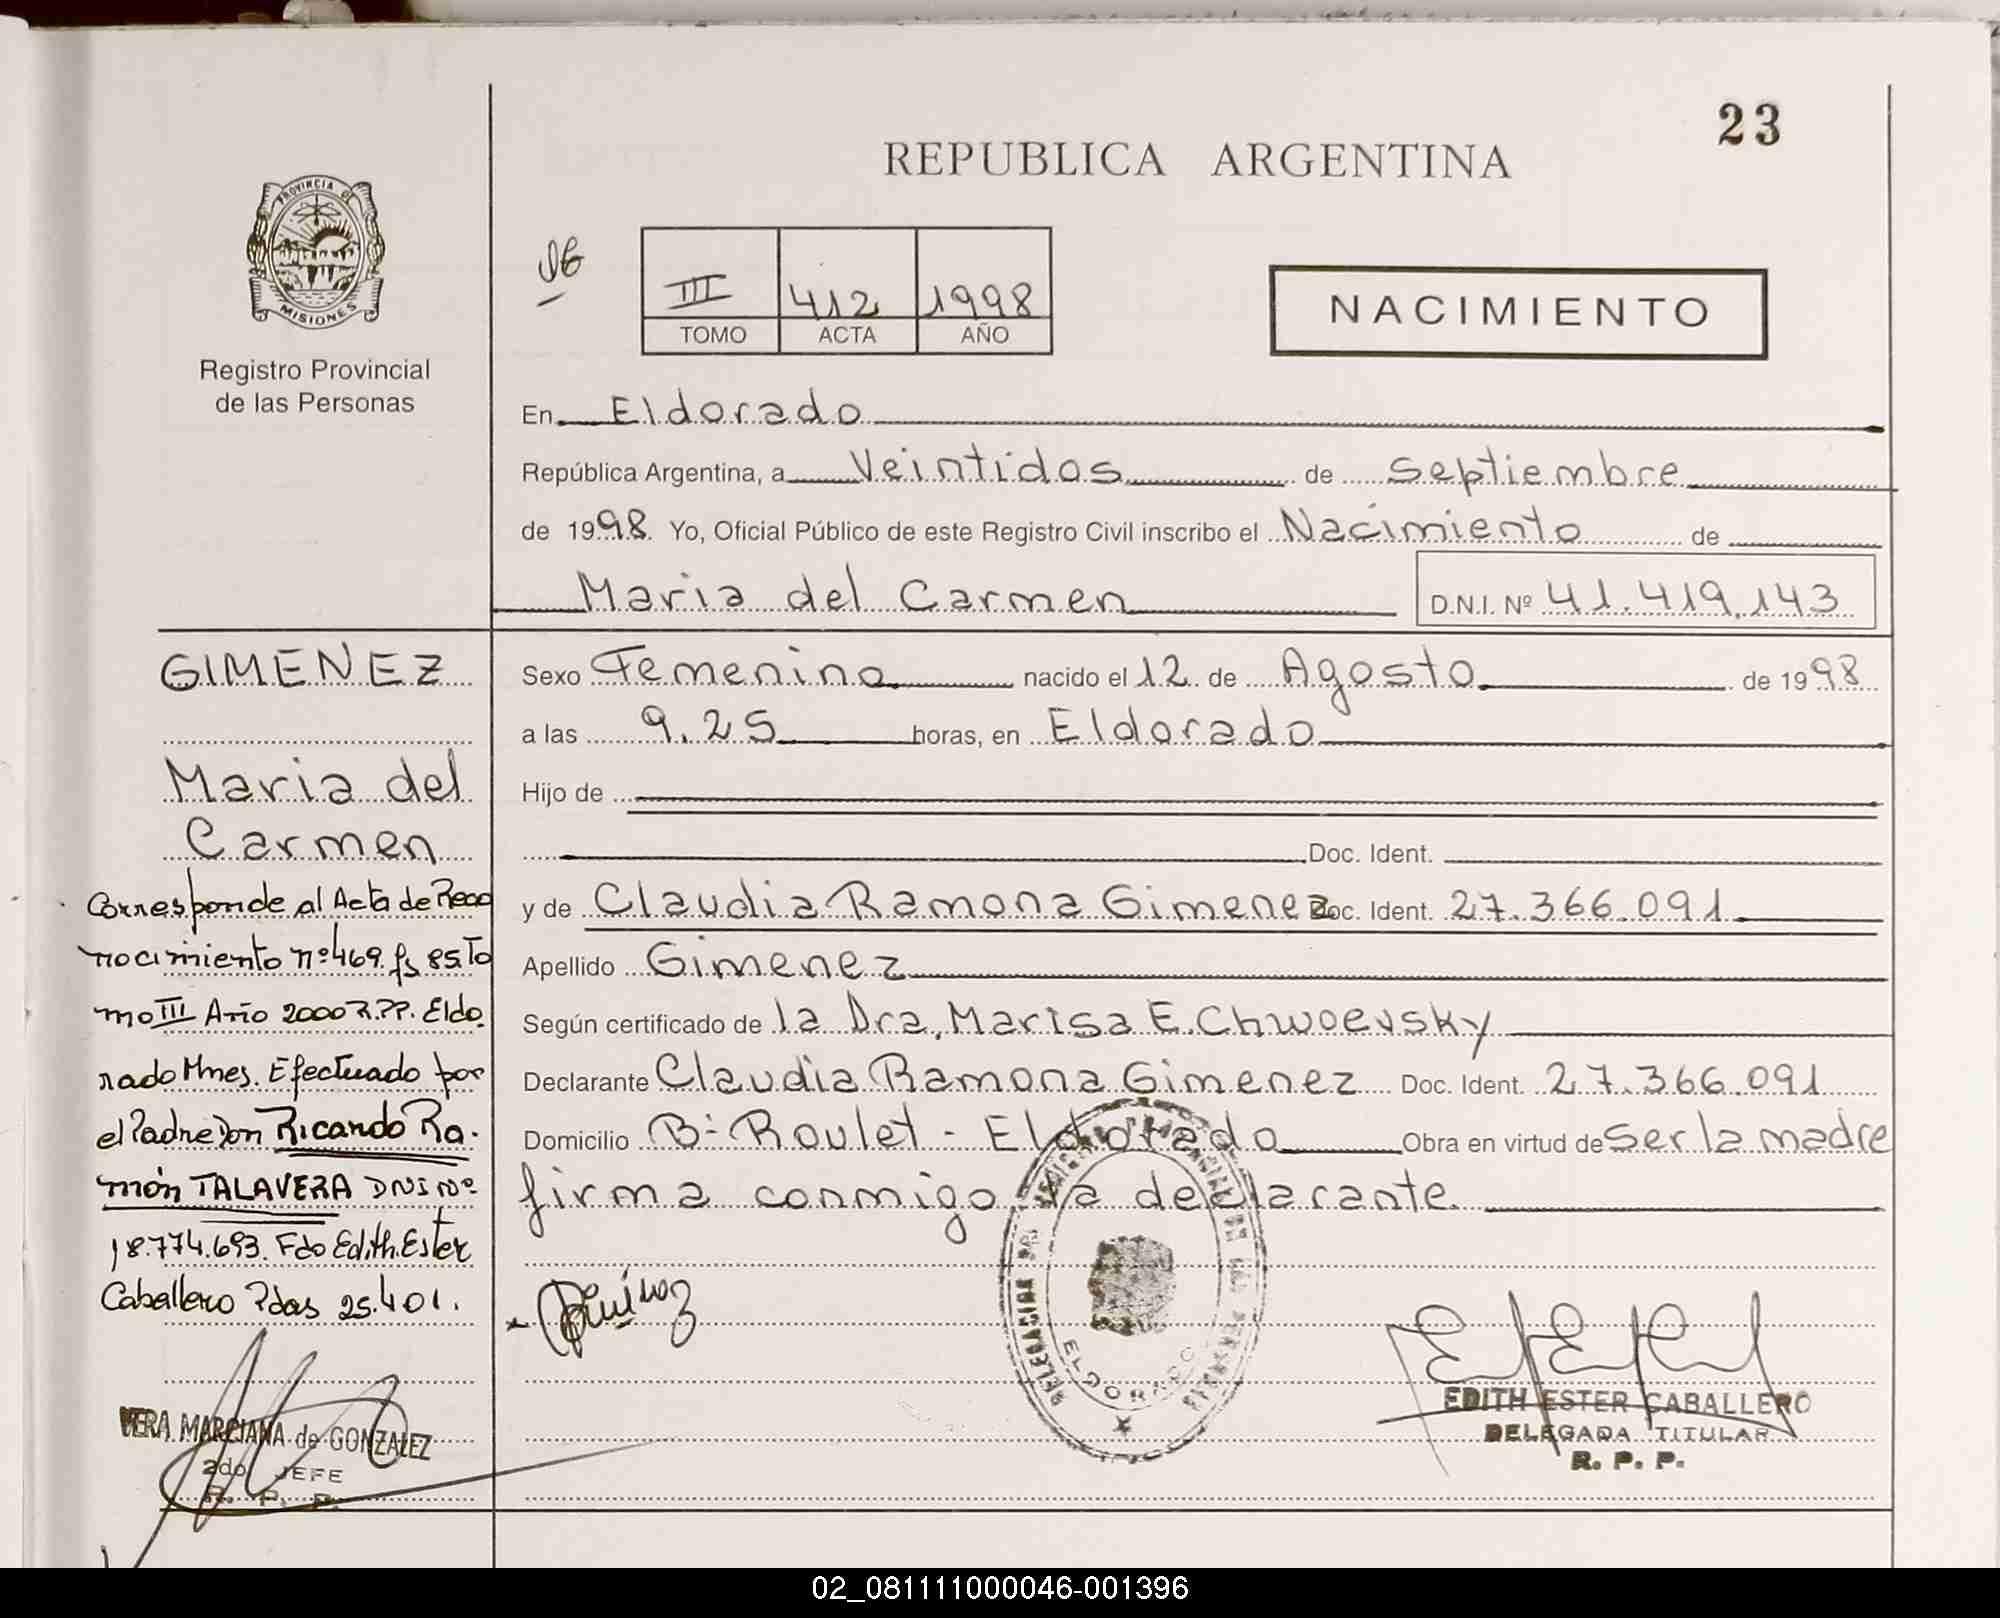 23
REPUBLICA ARGENTINA
PROVINCIA DE
MISIONES
Registro Provincial
de las Personas
III 412 1998
TOMO ACTA AÑO
NACIMIENTO
En Eldorado
República Argentina, a Veintidos de Septiembre
de 1998. Yo, Oficial Público de este Registro Civil inscribo el Nacimiento de
Maria del Carmen D.N.I. Nº 41.419.143
Sexo Femenino nacido el 12 de Agosto de 1998
a las 9.25 horas, en Eldorado
Hijo de
Doc. Ident.
y de Claudia Ramona Gimenez Doc. Ident. 27.366.091
Apellido Gimenez
Según certificado de la Dra. Marisa E. Chwoevsky
Declarante Claudia Ramona Gimenez Doc. Ident. 27.366.091
Domicilio Bº Roulet - Eldorado Obra en virtud de ser la madre
firma conmigo la declarante.
GIMENEZ
Maria del
Carmen
Corresponde al Acta de Reco
nocimiento nº 469 fs 85 To
mo III Año 2000 R.PP. Eldo.
rado Mnes. Efectuado por
el Padre Don Ricardo Ra.
món TALAVERA DNI Nº
18.774.693. Fdo Edith Ester
Caballero Pdas 25.401.
VERA MARCIANA de GONZALEZ
2do JEFE
R. P. P.
ELDORADO
EDITH ESTER CABALLERO
DELEGADA TITULAR
R. P. P.
02_081111000046-001396